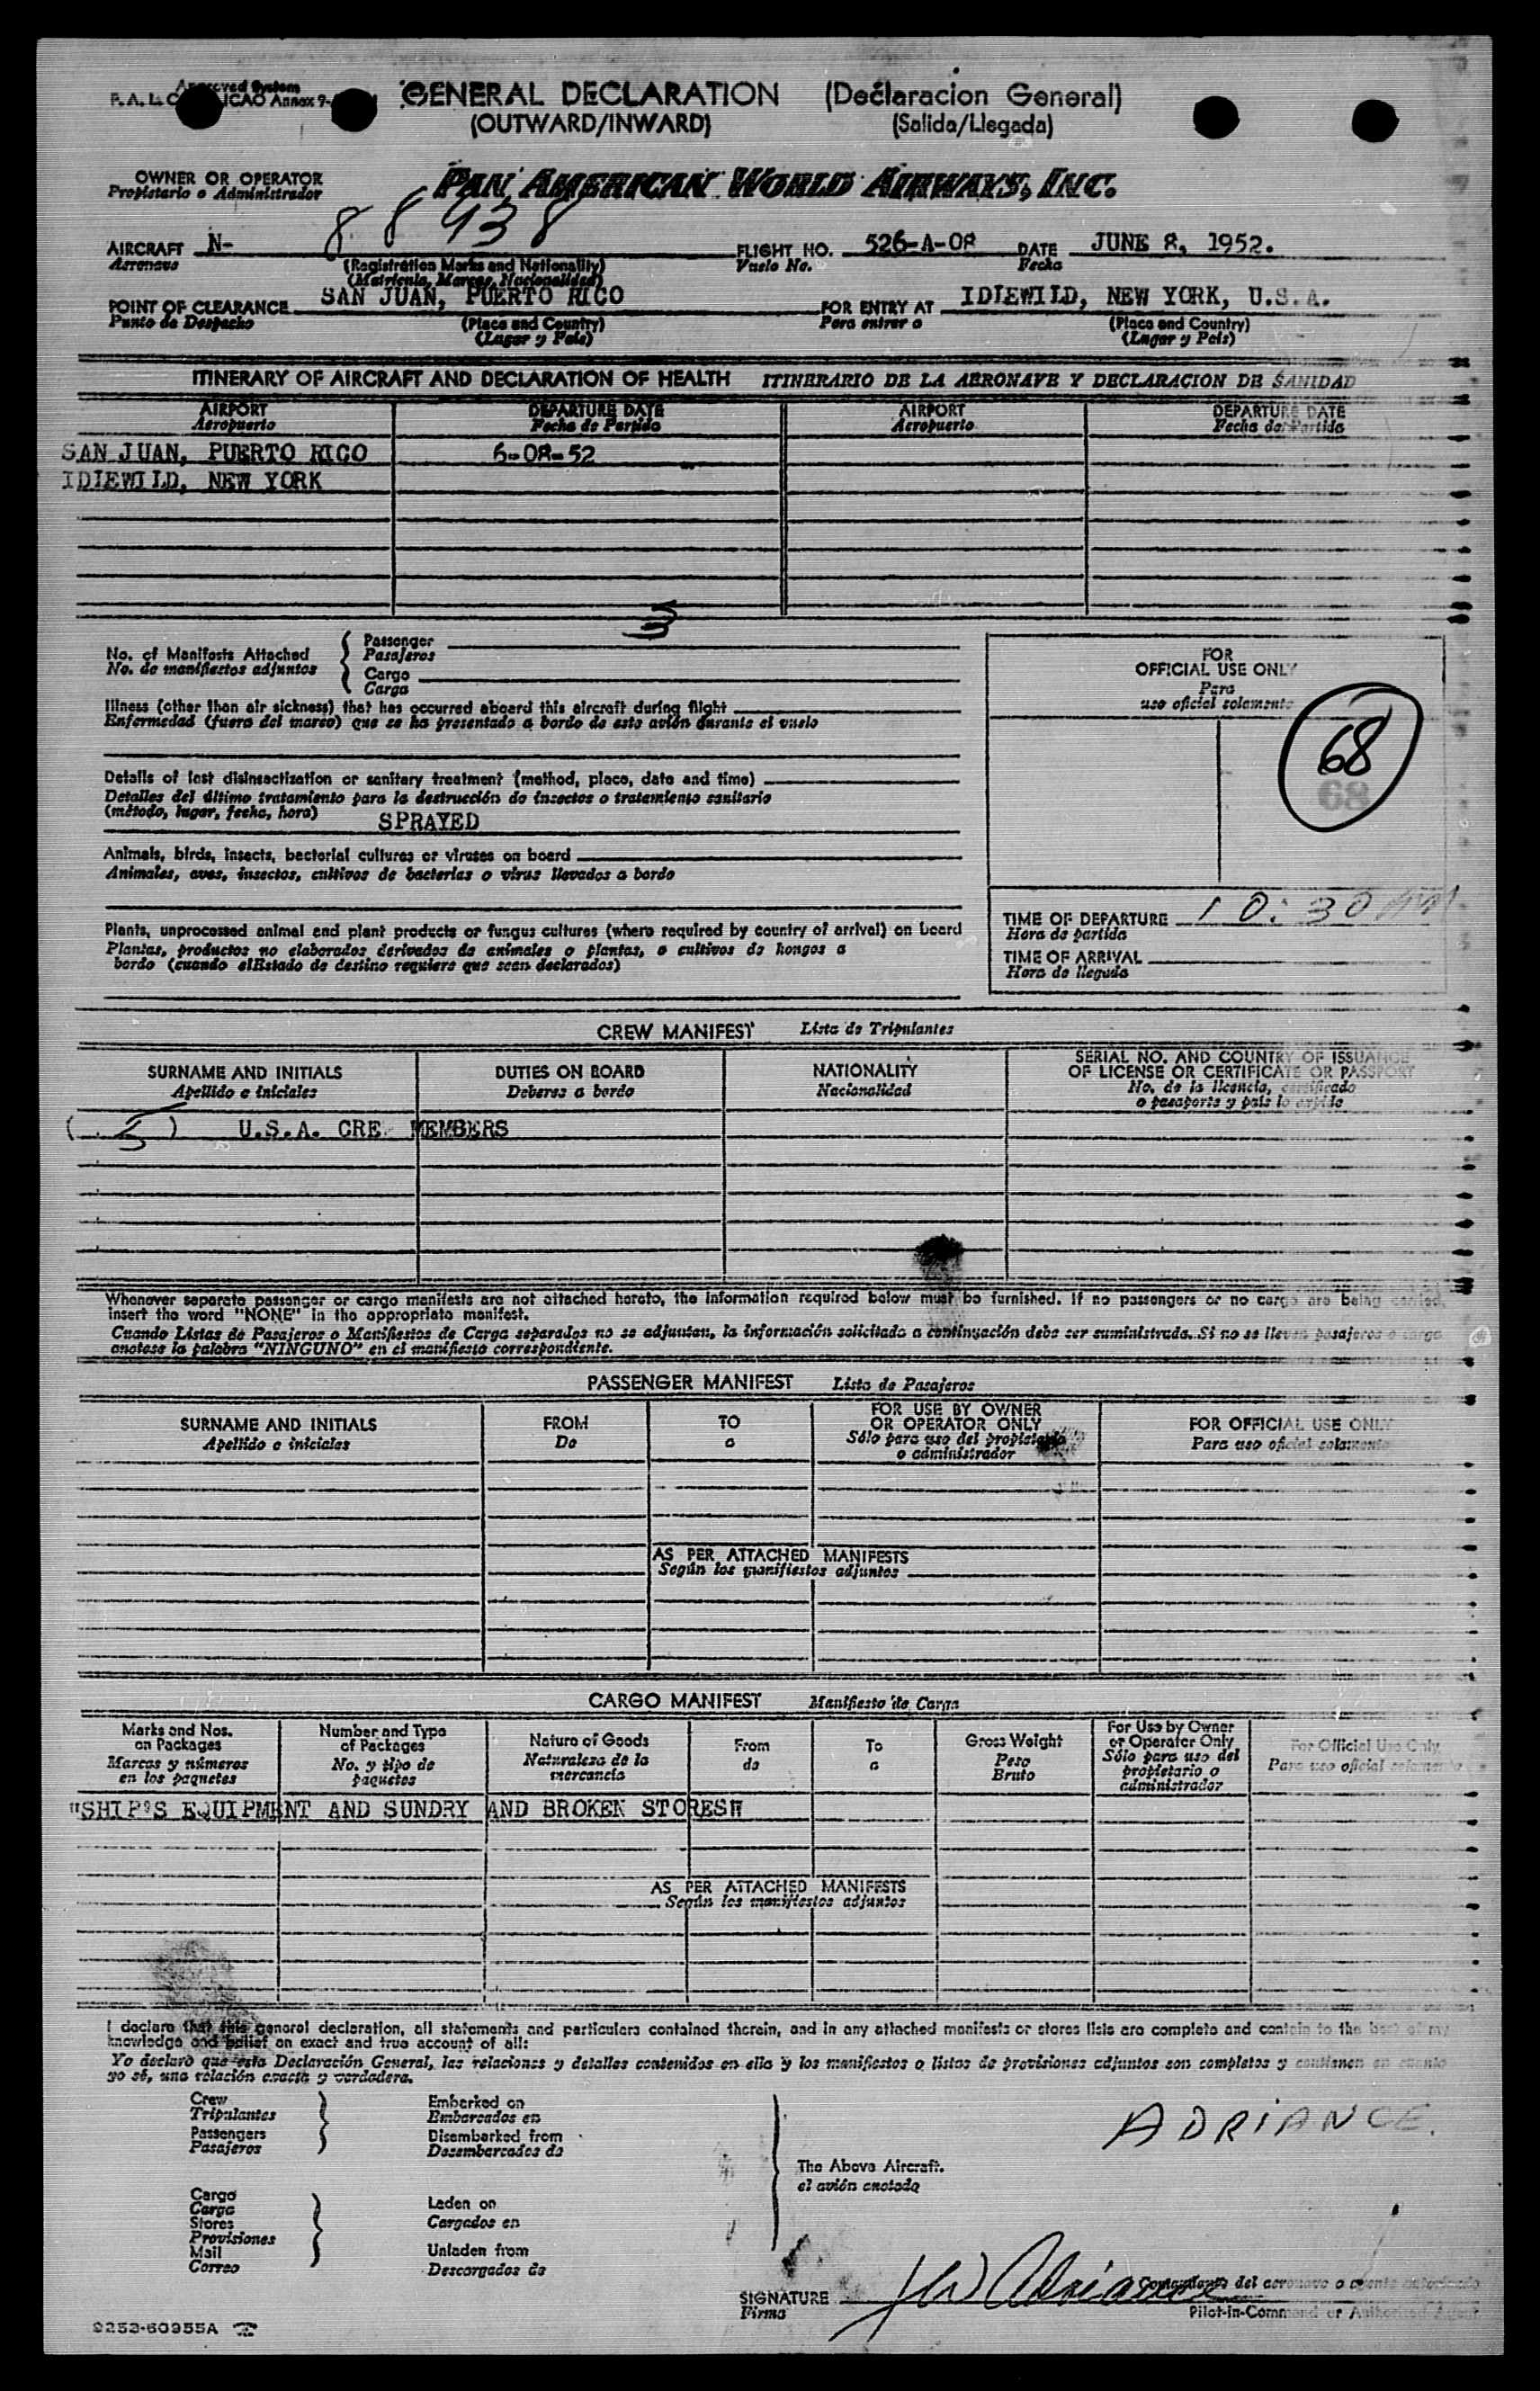 Approved System
F.A.L. ICAO Annex 9-
GENERAL DECLARATION (Declaracion General)
(OUTWARD/INWARD) (Salida/Llegada)
OWNER OR OPERATOR PAN AMERICAN WORLD AIRWAYS, INC.
Propietario o Administrador
AIRCRAFT N- 88938 FLIGHT NO. 526-A-08 DATE JUNE 8, 1952.
Aeronave (Registration Marks and Nationality) Vuelo No. Fecha
(Matricula, Marcas, Nacionalidad)
POINT OF CLEARANCE SAN JUAN, PUERTO RICO FOR ENTRY AT IDLEWILD, NEW YORK, U.S.A.
Punto de Despacho (Place and Country) Para entrar a (Place and Country)
(Lugar y País) (Lugar y País)
ITINERARY OF AIRCRAFT AND DECLARATION OF HEALTH ITINERARIO DE LA AERONAVE Y DECLARACION DE SANIDAD
AIRPORT DEPARTURE DATE AIRPORT DEPARTURE DATE
Aeropuerto Fecha de Partida Aeropuerto Fecha de Partida
SAN JUAN, PUERTO RICO 6-08-52
IDLEWILD, NEW YORK
3
No. of Manifests Attached Passenger
No. de manifiestos adjuntos Pasajeros
Cargo
Carga
Illness (other than air sickness) that has occurred aboard this aircraft during flight
Enfermedad (fuera del mareo) que se ha presentado a bordo de este avión durante el vuelo
Details of last disinsectization or sanitary treatment (method, place, date and time)
Detalles del último tratamiento para la destrucción de insectos o tratamiento sanitario
(método, lugar, fecha, hora) SPRAYED
Animals, birds, insects, bacterial cultures or viruses on board
Animales, aves, insectos, cultivos de bacterias o virus llevados a bordo
Plants, unprocessed animal and plant products or fungus cultures (where required by country of arrival) on board
Plantas, productos no elaborados derivados de animales o plantas, o cultivos de hongos a
bordo (cuando elEstado de destino requiere que sean declarados)
FOR
OFFICIAL USE ONLY
Para
uso oficial solamente
68
68
TIME OF DEPARTURE 10:30
Hora de partida
TIME OF ARRIVAL
Hora de llegada
CREW MANIFEST Lista de Tripulantes
SURNAME AND INITIALS DUTIES ON BOARD NATIONALITY SERIAL NO. AND COUNTRY OF ISSUANCE
Apellido e iniciales Deberes a bordo Nacionalidad OF LICENSE OR CERTIFICATE OR PASSPORT
No. de la licencia, certificado
o pasaporte y país lo expide
( 5 ) U.S.A. CRE MEMBERS
Whenever separate passenger or cargo manifests are not attached hereto, the information required below must be furnished. If no passengers or no cargo are being carried,
insert the word "NONE" in the appropriate manifest.
Cuando Listas de Pasajeros o Manifiestos de Carga separados no se adjuntan, la información solicitada a continuación debe ser suministrada. Si no se llevan pasajeros o carga
anotese la palabra "NINGUNO" en el manifiesto correspondiente.
PASSENGER MANIFEST Lista de Pasajeros
SURNAME AND INITIALS FROM TO FOR USE BY OWNER FOR OFFICIAL USE ONLY
Apellido e iniciales De a OR OPERATOR ONLY Para uso oficial solamente
Sólo para uso del propietario
o administrador
AS PER ATTACHED MANIFESTS
Según los manifiestos adjuntos
CARGO MANIFEST Manifiesto de Carga
Marks and Nos. Number and Type Nature of Goods From To Gross Weight For Use by Owner For Official Use Only
on Packages of Packages Naturaleza de la de a Peso or Operator Only Para uso oficial solamente
Marcas y números No. y tipo de mercancía Bruto Sólo para uso del
en los paquetes paquetes propietario o
administrador
"SHIP'S EQUIPMENT AND SUNDRY AND BROKEN STORES"
AS PER ATTACHED MANIFESTS
Según los manifiestos adjuntos
I declare that this general declaration, all statements and particulars contained therein, and in any attached manifests or stores lists are complete and contain to the best of my
knowledge and belief an exact and true account of all:
Yo declaro que esta Declaración General, las relaciones y detalles contenidos en ella y los manifiestos o listas de provisiones adjuntos son completos y contienen en cuanto
yo sé, una relación exacta y verdadera.
Crew Embarked on
Tripulantes Embarcados en
Passengers Disembarked from
Pasajeros Desembarcados de
The Above Aircraft.
el avión anotado
ADRIANCE.
Cargo Laden on
Carga Cargados en
Stores
Provisiones
Mail Unladen from
Correo Descargados de
SIGNATURE JW Adriance Comandante del aeronave o agente autorizado
Firma Pilot-in-Command or Authorized Agent
9252-60955A